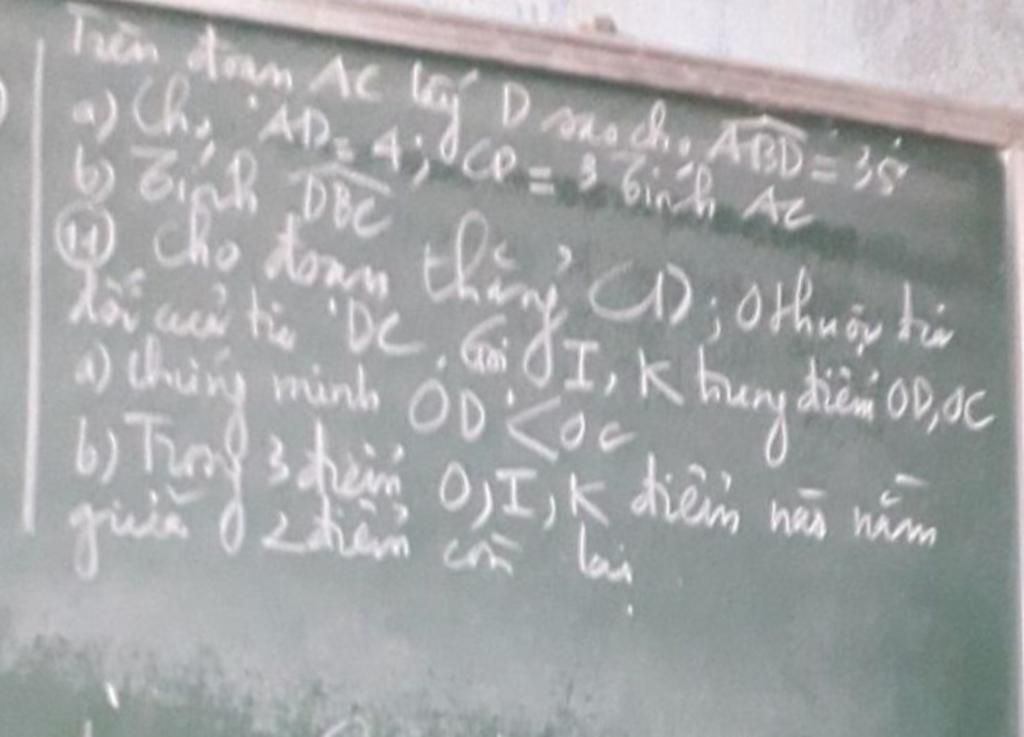 Trên đoạn AC lấy D sao cho ABD = 35
a) Cho AD = 4; CD = 3 Tính AC
b) Tính DBC
14 Cho đoạn thẳng CD; O thuộc tia
đối của tia DC. Gọi I, K trung điểm OD, OC
a) Chứng minh OD < OC
b) Trong 3 điểm O, I, K điểm nào nằm
giữa 2 điểm còn lại